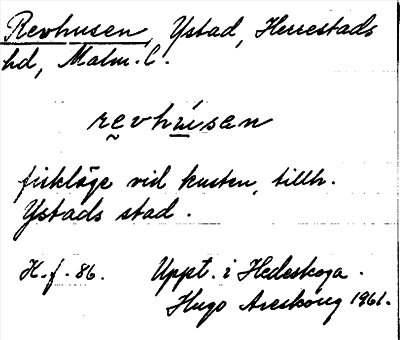 Revhusen, Ystad, Herrestads
hd, Malm. C.
revhúsen
fiskläge vid kusten, tillh.
Ystads stad.
H.f. 86. Uppt. i Hedeskoga.
Hugo Areskoug 1961.